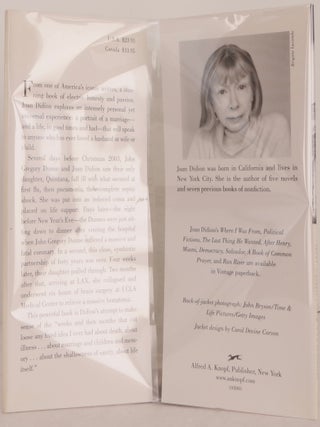 U.S.A. $23.95
Canada $33.95
From one of America's iconic writers, a stun-
ning book of electric honesty and passion.
Joan Didion explores an intensely personal yet
universal experience: a portrait of a marriage—
and a life, in good times and bad—that will speak
to anyone who has ever loved a husband or wife
or child.
Several days before Christmas 2003, John
Gregory Dunne and Joan Didion saw their only
daughter, Quintana, fall ill with what seemed at
first flu, then pneumonia, then complete septic
shock. She was put into an induced coma and
placed on life support. Days later—the night
before New Year's Eve—the Dunnes were just sit-
ting down to dinner after visiting the hospital
when John Gregory Dunne suffered a massive and
fatal coronary. In a second, this close, symbiotic
partnership of forty years was over. Four weeks
later, their daughter pulled through. Two months
after that, arriving at LAX, she collapsed and
underwent six hours of brain surgery at UCLA
Medical Center to relieve a massive hematoma.
This powerful book is Didion's attempt to make
sense of the "weeks and then months that cut
loose any fixed idea I ever had about death, about
illness . . . about marriage and children and mem-
ory . . . about the shallowness of sanity, about life
itself."
Joan Didion was born in California and lives in
New York City. She is the author of five novels
and seven previous books of nonfiction.
Joan Didion's Where I Was From, Political
Fictions, The Last Thing He Wanted, After Henry,
Miami, Democracy, Salvador, A Book of Common
Prayer, and Run River are available
in Vintage paperback.
Back-of-jacket photograph: John Bryson/Time &
Life Pictures/Getty Images
Jacket design by Carol Devine Carson
Alfred A. Knopf, Publisher, New York
www.aaknopf.com